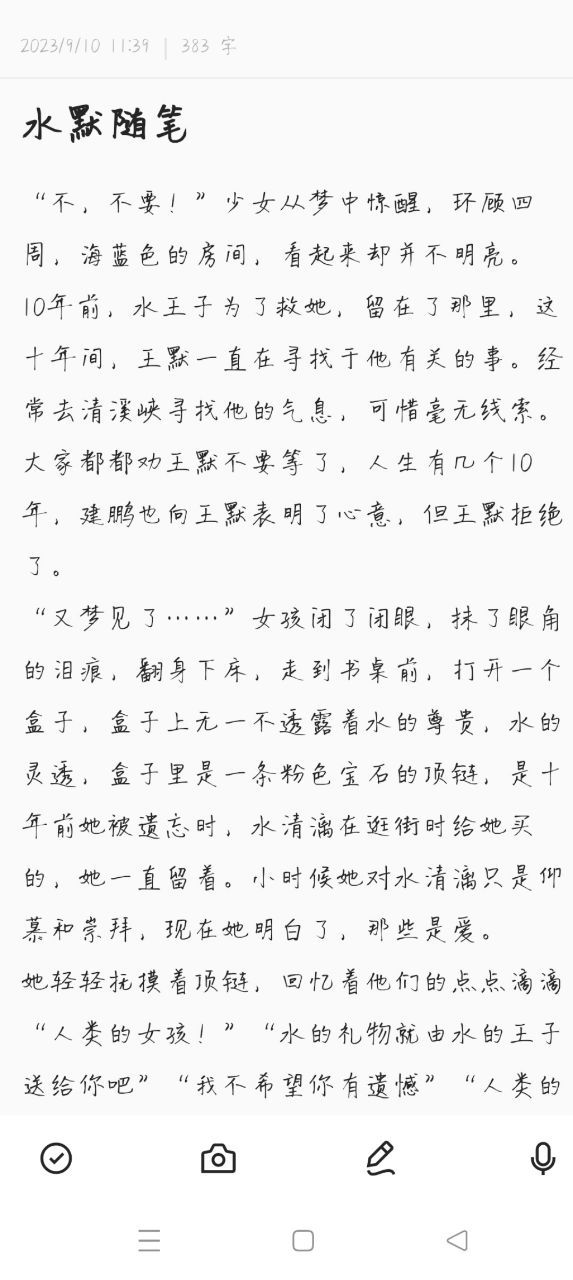 2023/9/10 11:39 | 383 字
水默随笔
“不，不要！”少女从梦中惊醒，环顾四
周，海蓝色的房间，看起来却并不明亮。
10年前，水王子为了救她，留在了那里，这
十年间，王默一直在寻找于他有关的事。经
常去清溪峡寻找他的气息，可惜毫无线索。
大家都都劝王默不要等了，人生有几个10
年，建鹏也向王默表明了心意，但王默拒绝
了。
“又梦见了……”女孩闭了闭眼，抹了眼角
的泪痕，翻身下床，走到书桌前，打开一个
盒子，盒子上无一不透露着水的尊贵，水的
灵透，盒子里是一条粉色宝石的项链，是十
年前她被遗忘时，水清漓在逛街时给她买
的，她一直留着。小时候她对水清漓只是仰
慕和崇拜，现在她明白了，那些是爱。
她轻轻抚摸着项链，回忆着他们的点点滴滴
“人类的女孩！”“水的礼物就由水的王子
送给你吧”“我不希望你有遗憾”“人类的